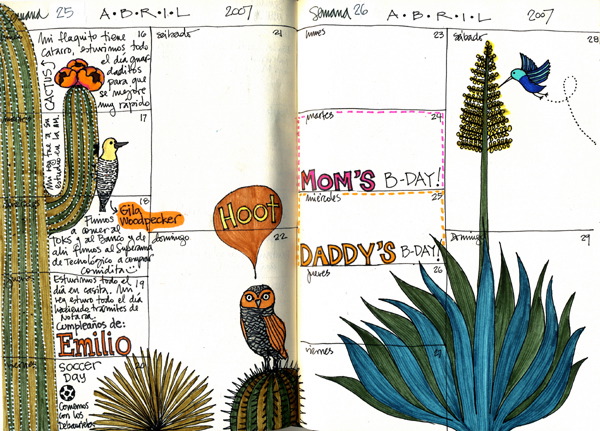 Semana 25 A·B·R·I·L 2007
16
Mi flaquito tiene
catarro, estuvimos todo
el día guar-
daditos
para que
se mejore
muy rápido
CACTUS
17
18
Gila
Woodpecker
Fuimos
a comer al
Toks y al Banco y de
ahí fuimos al Superama
de Tecnológico a comprar
comidita
19
Estuvimos todo el
día en casita. Mi
rey estuvo todo el día
haciendo trámites de
Notaría
Cumpleaños de:
Emilio
20
Soccer
Day
Comemos
con los
sábado 21
Hoot
domingo 22
Semana 26 A·B·R·I·L 2007
lunes 23
martes 24
MOM'S B-DAY!
miércoles 25
DADDY'S B-DAY!
jueves 26
viernes 27
sábado 28
Domingo 29